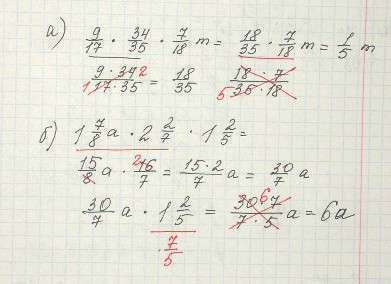 а) 9/17 · 34/35 · 7/18 m = 18/35 · 7/18 m = 1/5 m
1 9 · 34 2 / 17 · 35 = 18/35 18 · 7 / 5 35 · 18
б) 1 7/8 a · 2 2/7 · 1 2/5 =
15/8 a · 2 16/7 = 15 · 2 / 7 a = 30/7 a
30/7 a · 1 2/5 = 30 6 7 / 7 · 5 a = 6a
· 7/5